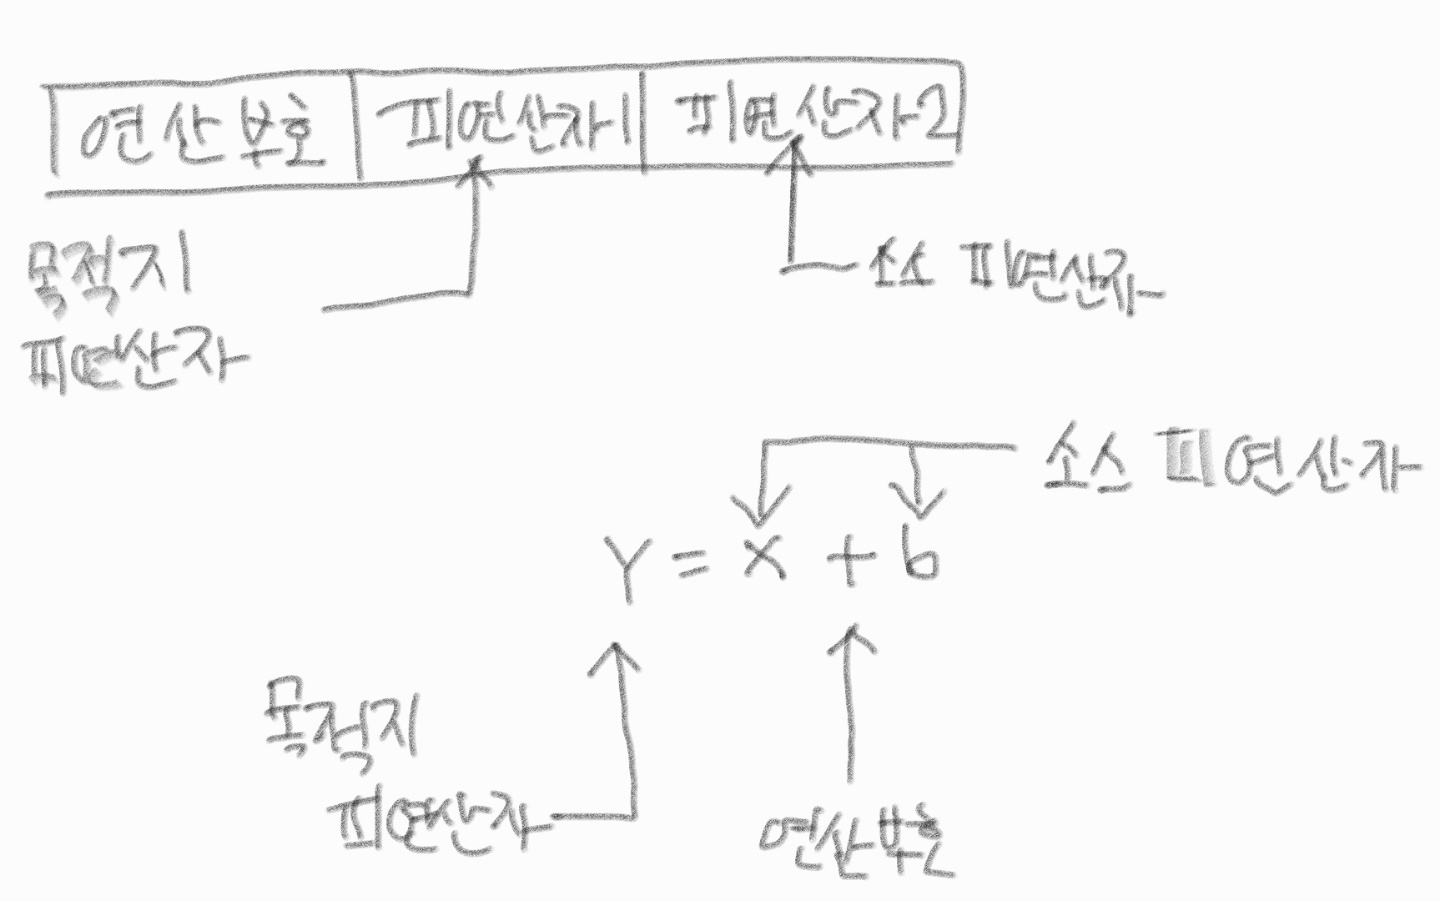 연산 부호 피연산자1 피연산자2
목적지
피연산자
소스 피연산자
소스 피연산자
Y = x + b
목적지
피연산자
연산부호